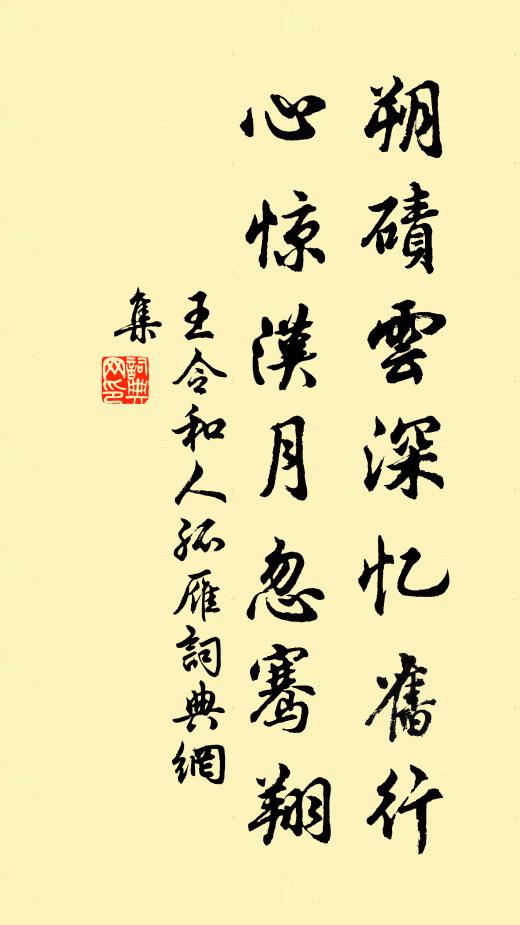 朔磧雲深忆舊行
心惊漢月忽骞翔
王令和人孤雁詞典網
集
詞典网印